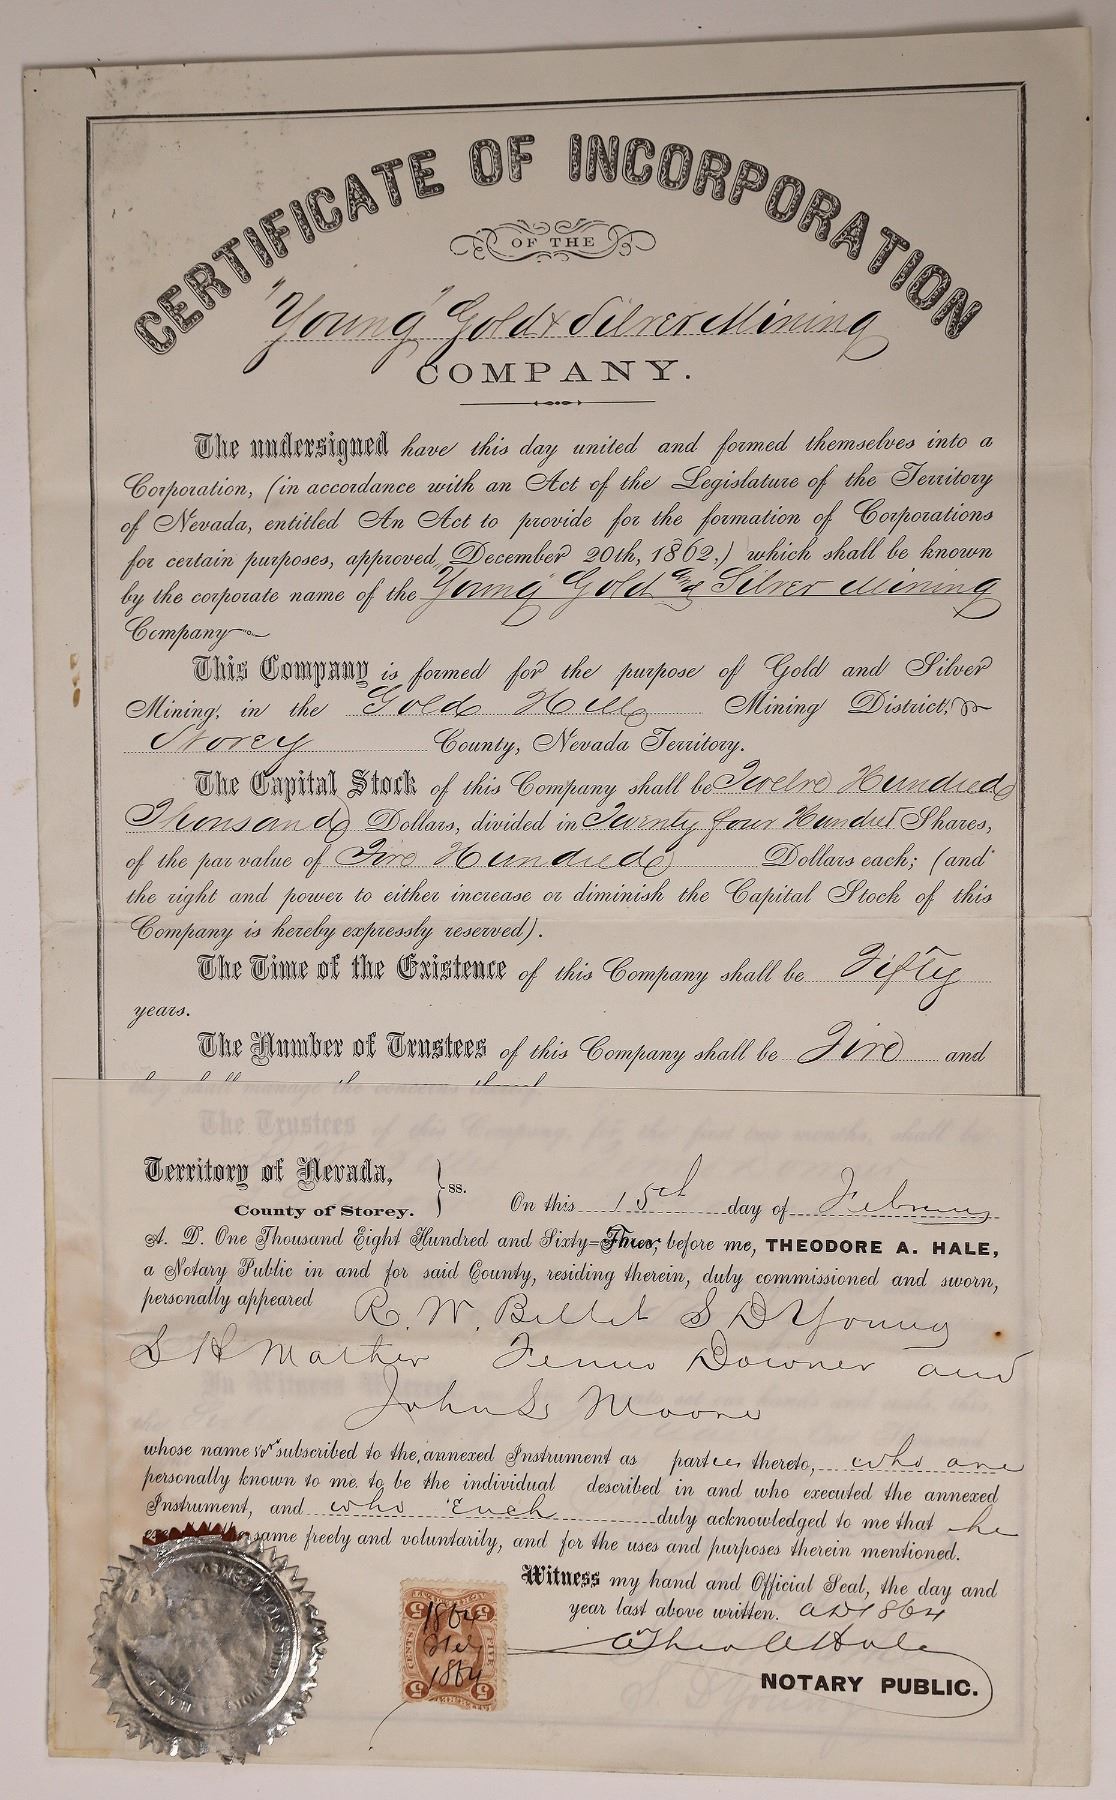 CERTIFICATE OF INCORPORATION
OF THE
"Young" Gold & Silver Mining
COMPANY.
The undersigned have this day united and formed themselves into a
Corporation, (in accordance with an Act of the Legislature of the Territory
of Nevada, entitled An Act to provide for the formation of Corporations
for certain purposes, approved December 20th, 1862,) which shall be known
by the corporate name of the "Young" Gold and Silver Mining
Company
This Company is formed for the purpose of Gold and Silver
Mining, in the Gold Hill Mining District,
Storey County, Nevada Territory.
The Capital Stock of this Company shall be Twelve Hundred
Thousand Dollars, divided in Twenty four Hundred Shares,
of the par value of Five Hundred Dollars each; (and
the right and power to either increase or diminish the Capital Stock of this
Company is hereby expressly reserved).
The Time of the Existence of this Company shall be Fifty
years.
The Number of Trustees of this Company shall be Five and
they shall manage the concerns thereof.
The Trustees of this Company, for the first two months, shall be
Territory of Nevada,
County of Storey. } ss.
On this 15th day of February
A. D. One Thousand Eight Hundred and Sixty-Three, before me, THEODORE A. HALE,
a Notary Public in and for said County, residing therein, duly commissioned and sworn,
personally appeared R. W. Billet S D Young
S H Mather Downer and
John S Moore
whose name subscribed to the annexed Instrument as parties thereto, who are
personally known to me to be the individual described in and who executed the annexed
Instrument, and who Each duly acknowledged to me that he
same freely and voluntarily, and for the uses and purposes therein mentioned.
Witness my hand and Official Seal, the day and
year last above written. AD 1864
Theo A Hale
NOTARY PUBLIC.
5 5
CENTS
1864
1864
5 5
S. D. Young